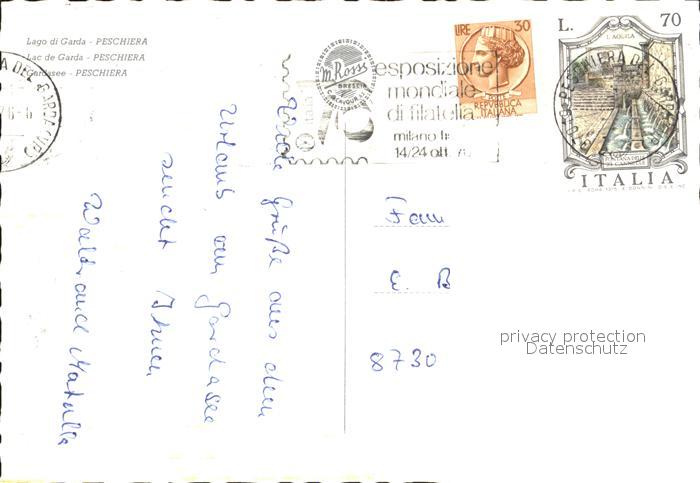 Lago di Garda - PESCHIERA
Lac de Garda - PESCHIERA
Gardasee - PESCHIERA
m. Rossi
BRESCIA
esposizione
mondiale
di filatelia
milano
14/24 ott. 76
LIRE 30
REPUBBLICA
ITALIANA
L. 70
L'AQUILA
FONTANA DELLE
99 CANNELLE
ITALIA
Viele Grüße aus dem
Urlaub am Gardasee
sendet Ihnen
Waltraud
Frau
E. B
8730
privacy protection
Datenschutz